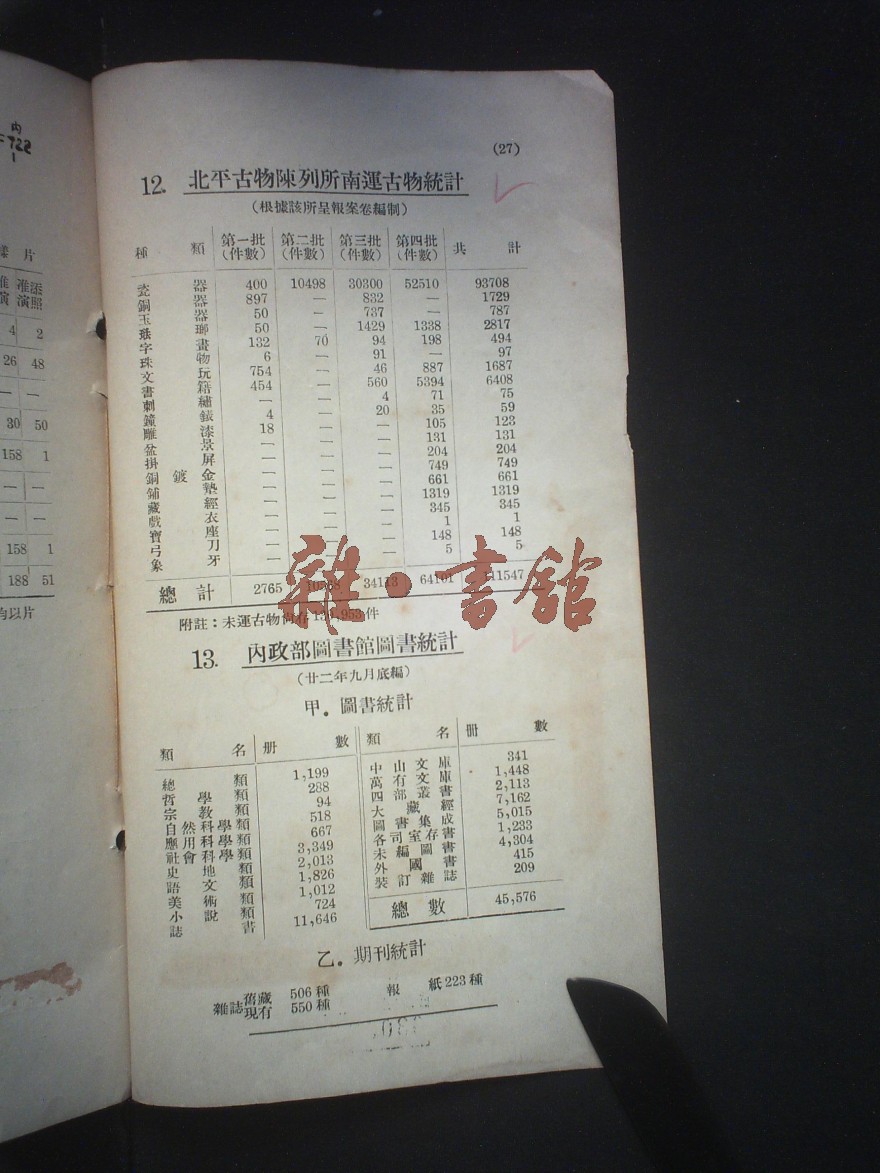 內
F722
1
樣 片
准演 准添演照
4 2
26 48
— —
30 50
158 1
— —
— —
158 1
188 51
均以片
(27)
12. 北平古物陳列所南運古物統計
(根據該所呈報案卷編制)
種 類 第一批(件數) 第二批(件數) 第三批(件數) 第四批(件數) 共 計
瓷 器 400 10498 30300 52510 93708
銅 器 897 — 832 — 1729
玉 器 50 — 737 — 787
琺 瑯 50 — 1429 1338 2817
字 畫 132 70 94 198 494
珠 物 6 — 91 — 97
文 玩 754 — 46 887 1687
書 籍 454 — 560 5394 6408
刺 繡 — — 4 71 75
鐘 錶 4 — 20 35 59
雕 漆 18 — — 105 123
盆 景 — — — 131 131
掛 屏 — — — 204 204
銅 鍍 金 — — — 749 749
鋪 墊 — — — 661 661
藏 經 — — — 1319 1319
戲 衣 — — — 345 345
寶 座 — — — 1 1
弓 刀 — — — 148 148
象 牙 — — — 5 5
總 計 2765 10568 34113 64101 111547
附註：未運古物尚存 件
雜·書館
13. 內政部圖書館圖書統計
(廿二年九月底編)
甲．圖書統計
類 名 册 數 類 名 册 數
總 類 1,199 中山文庫 341
哲學類 288 萬有文庫 1,448
宗教類 94 四部叢書 2,113
自然科學類 518 大藏經 7,162
應用科學類 667 圖書集成 5,015
社會科學類 3,349 各司室存書 1,233
史地類 2,013 未編圖書 4,304
語文類 1,826 外國書 415
美術類 1,012 裝訂雜誌 209
小說類 724 總數 45,576
誌書 11,646
乙．期刊統計
雜誌 舊藏 506種 報 紙 223種
現有 550種